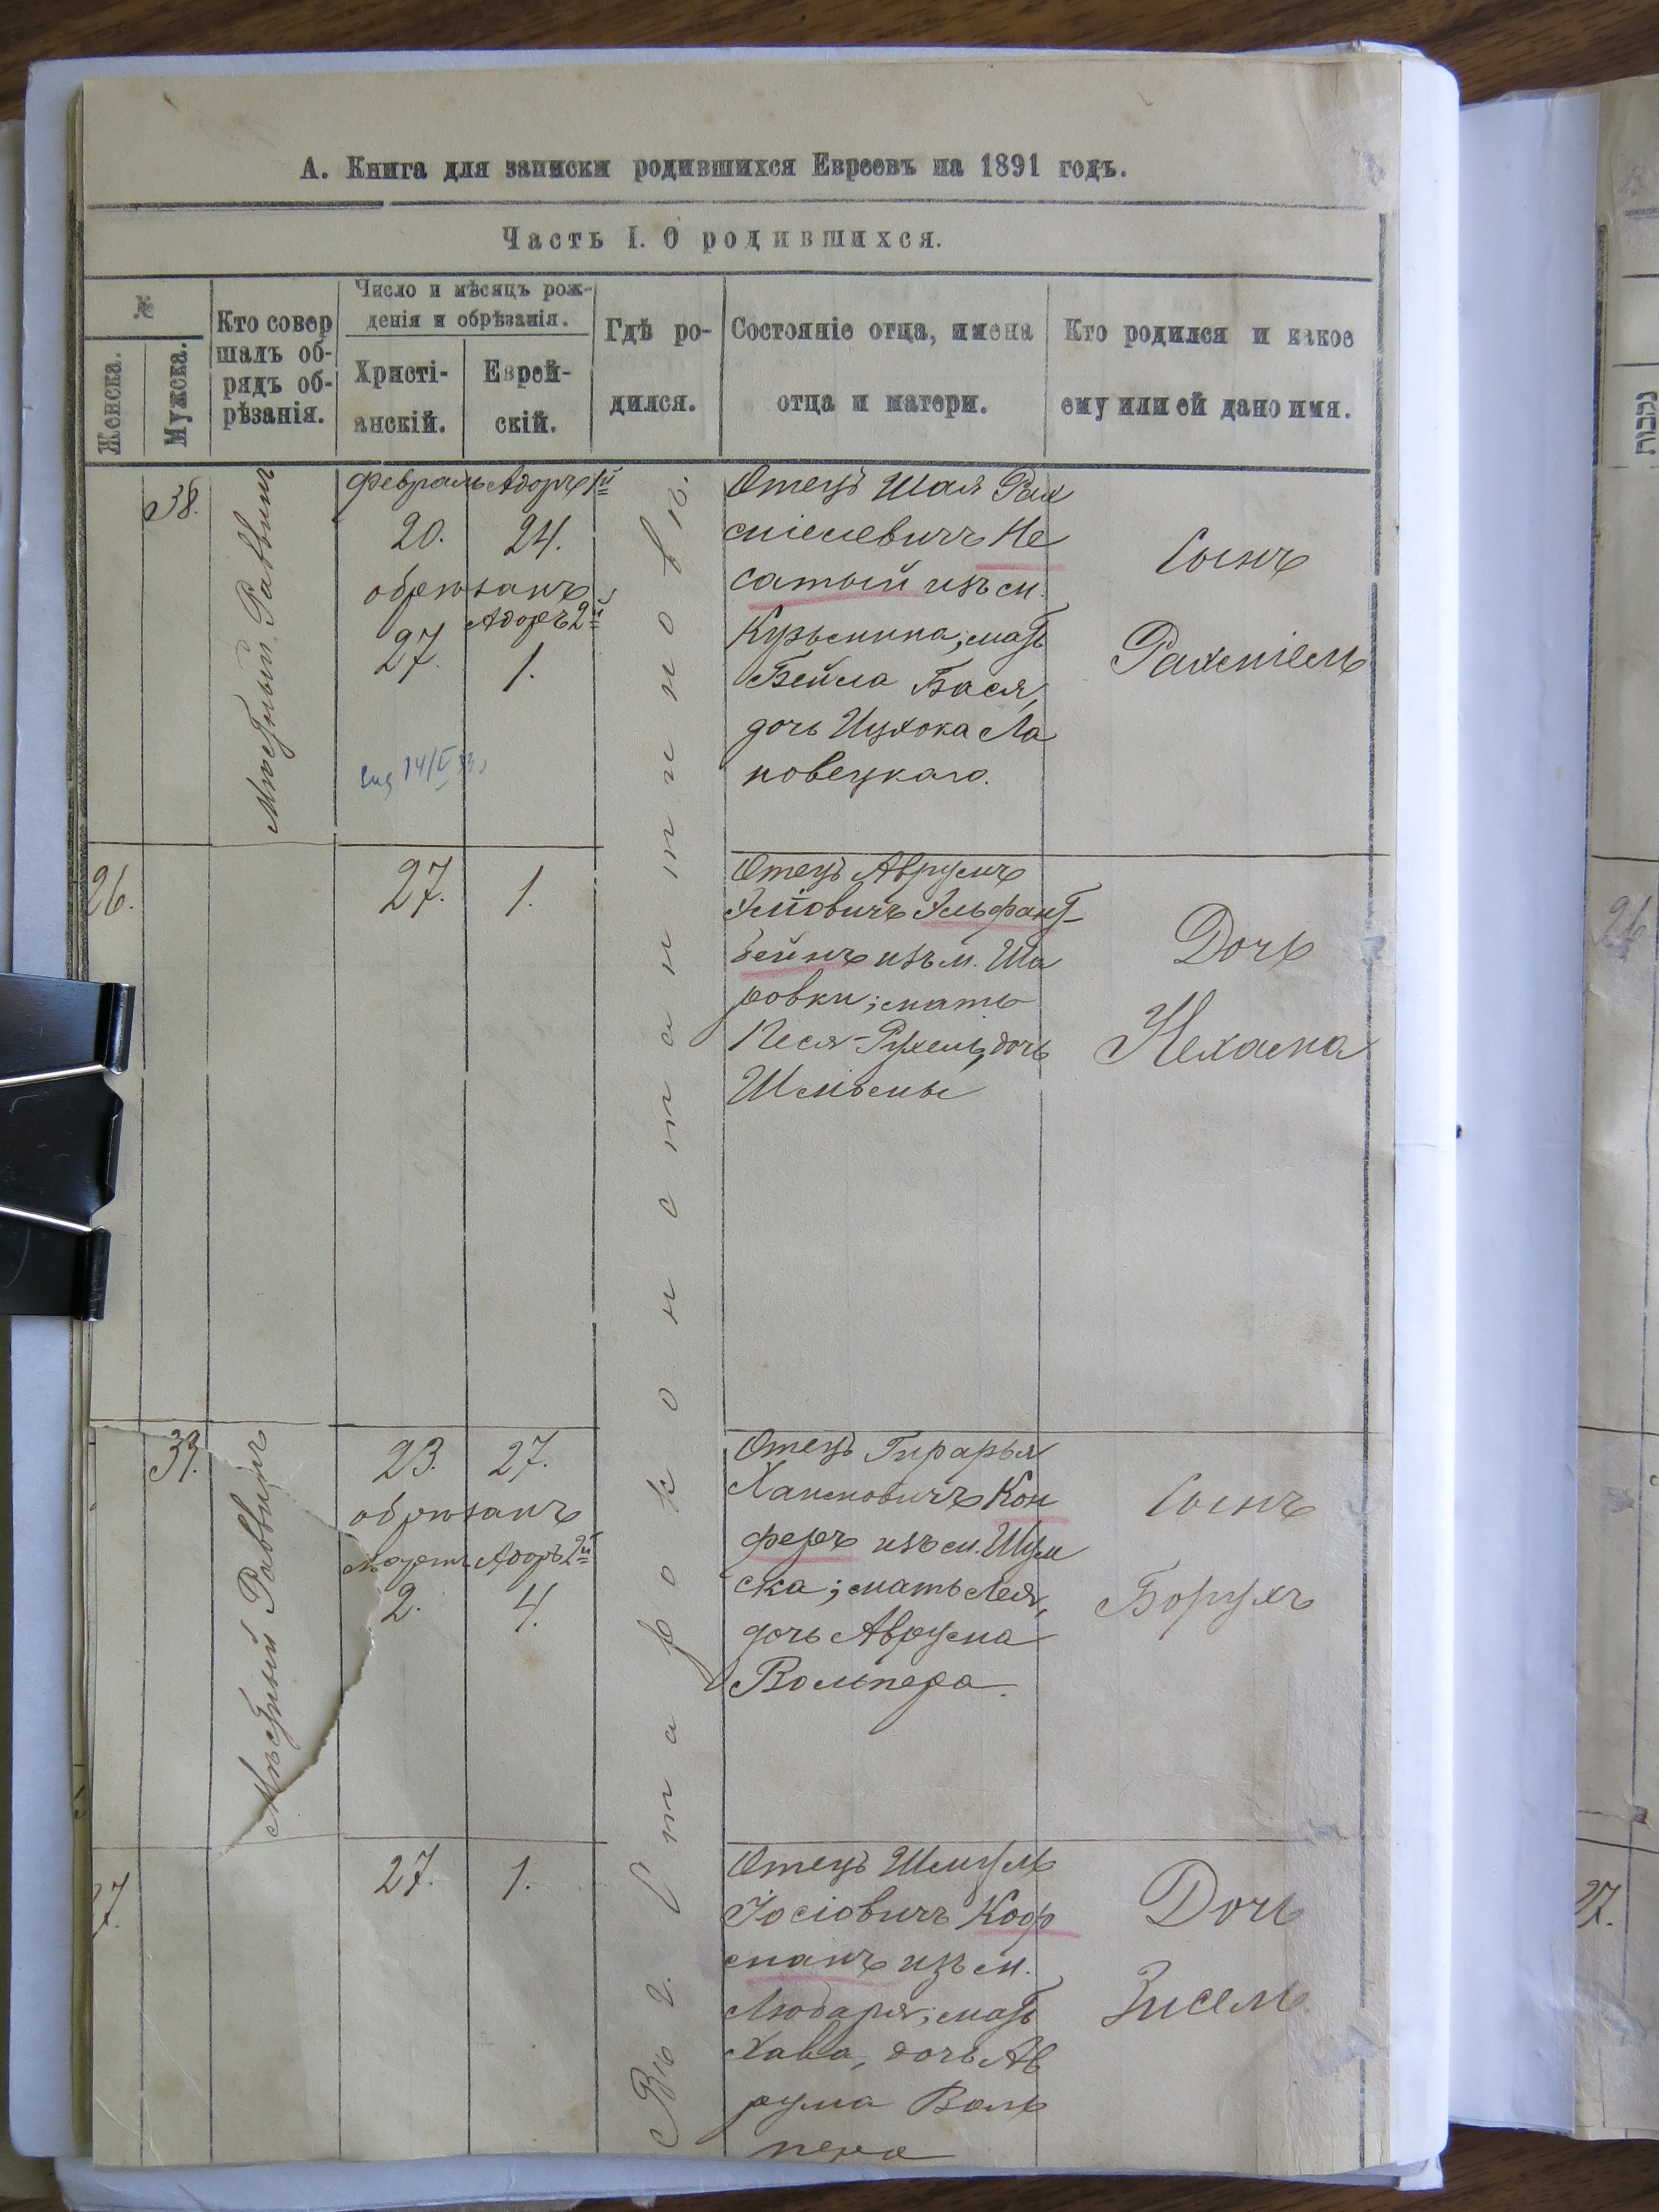 А. Книга для записки родившихся Евреевъ на 1891 годъ.
Часть I. О родившихся.
№
Женска.
Мужска.
Кто совер
шалъ об-
рядъ об-
рѣзанія.
Число и мѣсяцъ рож-
денія и обрѣзанія.
Христі-
анскій.
Еврей-
скій.
Гдѣ ро-
дился.
Состояніе отца, имена
отца и матери.
Кто родился и какое
ему или ей дано имя.
Въ г. Староконстантиновѣ.
38.
Мѣстный Раввинъ
Февраль Адоръ 1й
20. 24.
обрѣзанъ
Адоръ 2й
27. 1.
Отецъ Шая Рах
міелевичъ Не
сатый изъ м.
Кузьмина; мать
Бейла Бася,
дочь Ицхока Ла
новецкаго.
Сынъ
Рахміель
26.
27. 1.
Отецъ Аврумъ
Эльфант
бейнъ изъ м. Ша
ровки; мать
Песя-Рухель, дочь
Шлiомы
Дочь
Нехама
39.
Мѣстный Раввинъ
23. 27.
обрѣзанъ
Мартъ Адоръ 2й
2. 4.
Отецъ
Хаимовичъ Кон
феръ изъ м. Шум
ска; мать Лея,
дочь Аврума
Вольпера.
Сынъ
Борухъ
27.
27. 1.
Отецъ Шмуль
Іосіовичъ Коф
манъ изъ м.
Любаря; мать
Хава, дочь Ав
рума Воль
пера
Дочь
Зисель
נקבות
26
27.